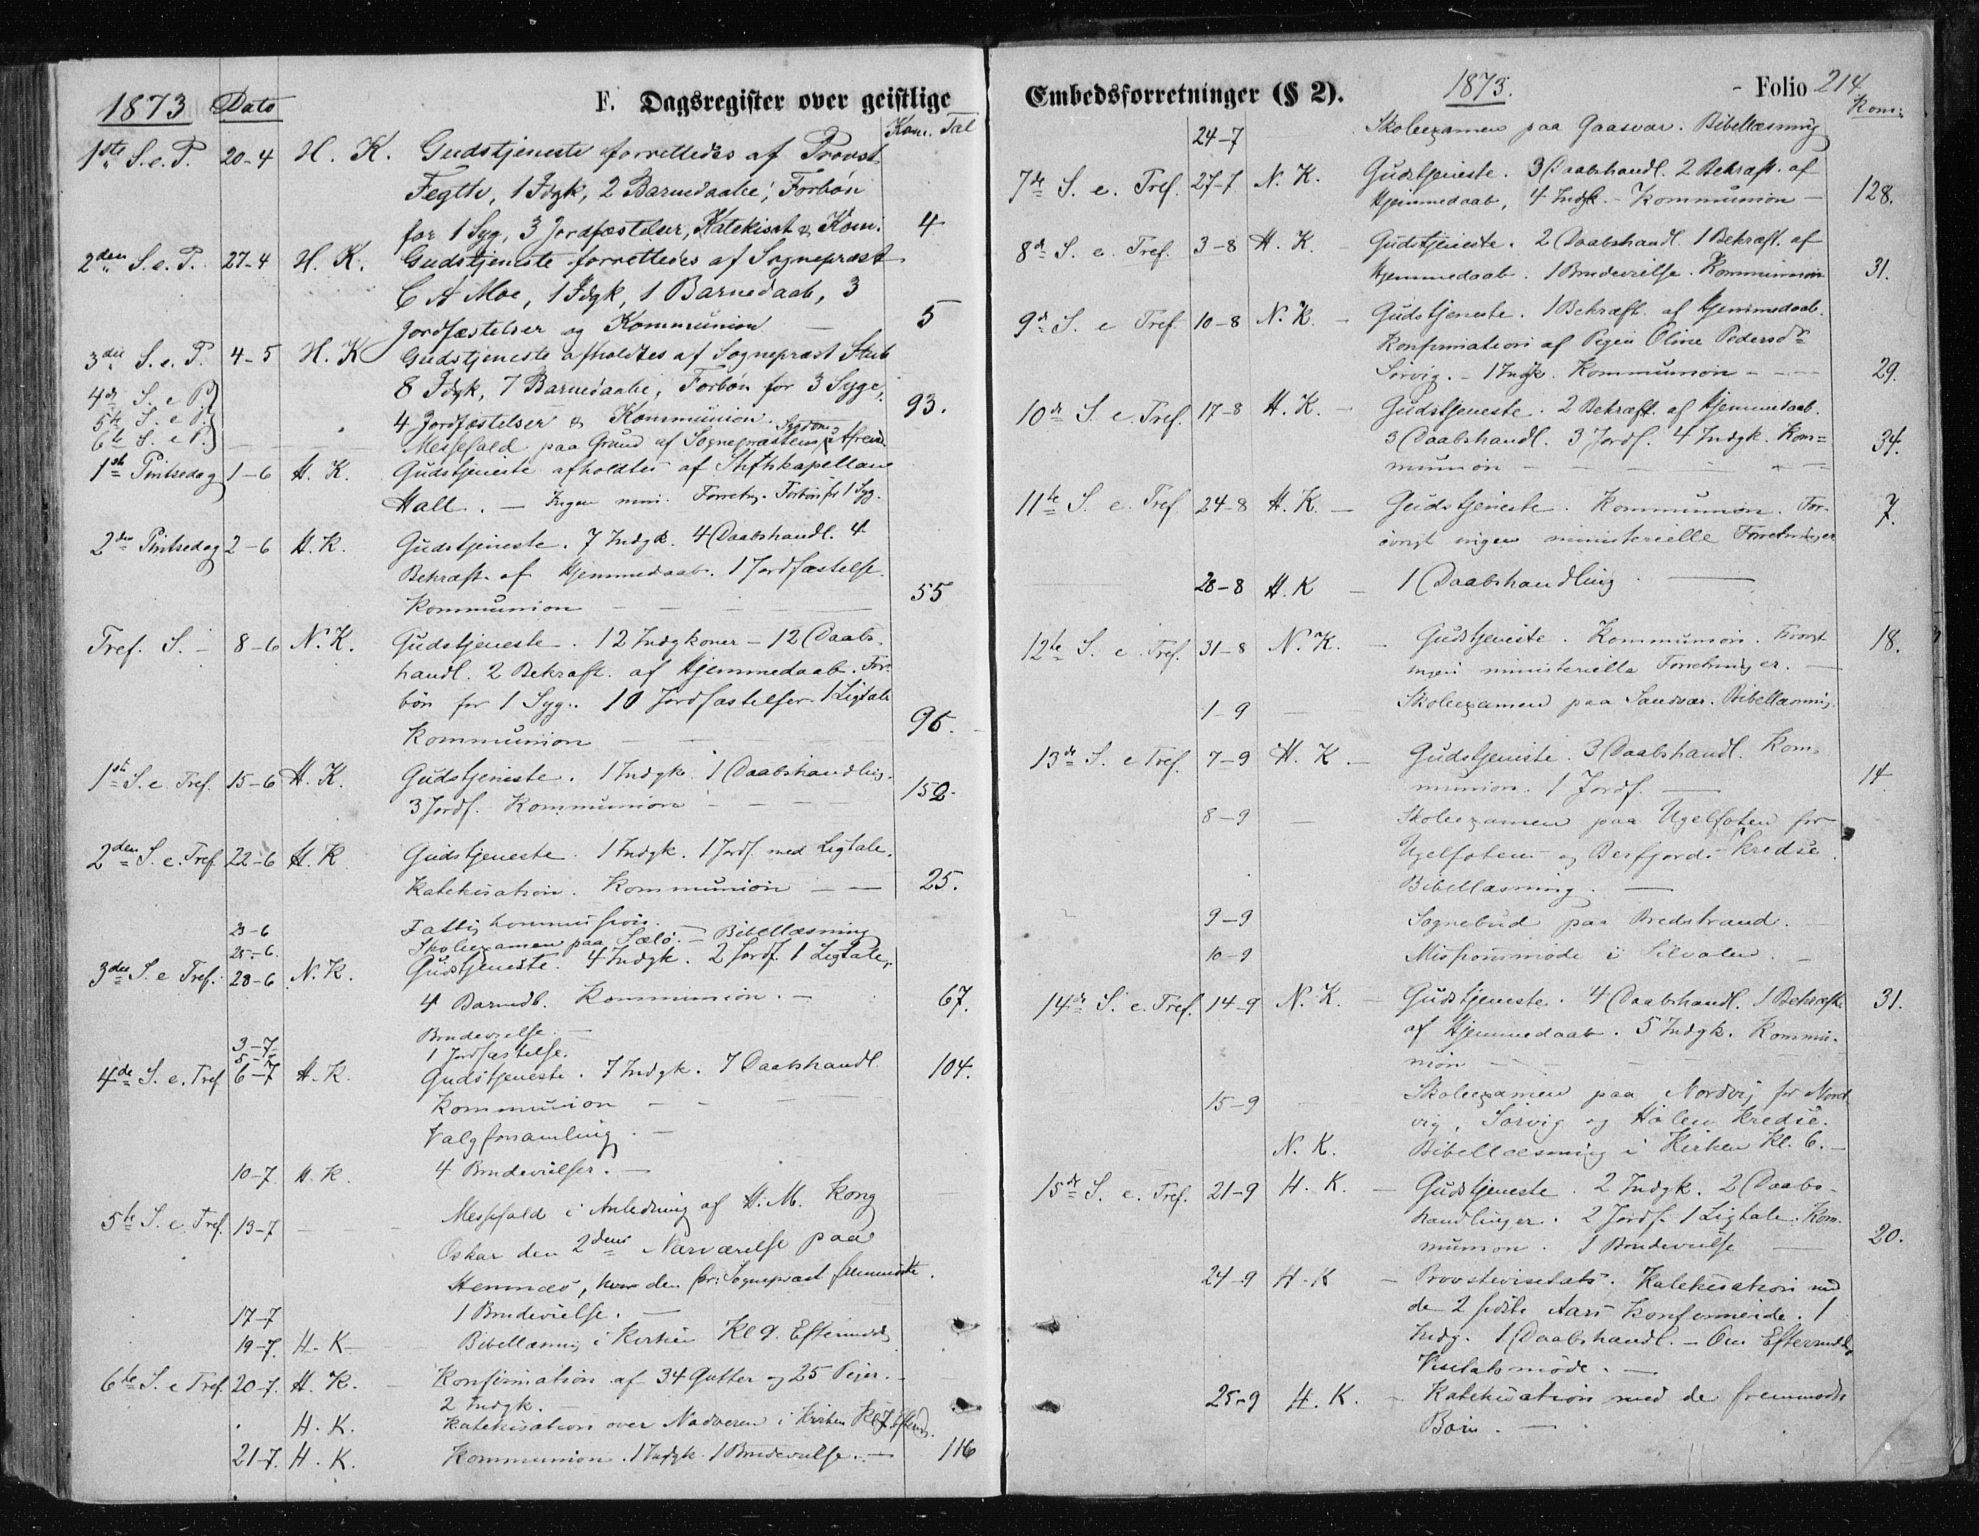 1873 Dato F. Dagsregister over geistlige
Kom. Tal
1ste S. e. P. 20-4 H. K. Gudstjeneste forrettedes af Provst
Fegth, 1 Idgk, 2 Barnedaabe, Forbøn
for 1 Syg, 3 Jordfæstelser, Katekisat & Kom. 4
2den S. e. P. 27-4 H. K. Gudstjeneste forrettedes af Sognepræst
C A Moe, 1 Idgk, 1 Barnedaab, 3
Jordfæstelser og Kommunion 5
3die S. e. P. 4-5 H. K Gudstjeneste afholdtes af Sognepræst
8 Idgk, 7 Barnedaabe, Forbøn for 3 Syge,
4de S. e P
4 Jordfæstelser & Kommunion. 93.
5te S. e P.
6te S. e P. Messefald paa Grund af Sognepræstens Sygdom
1ste Pintsedag 1-6 H. K. Gudstjeneste afholdtes af Stiftskapellan
Hall. - Ingen min. Forretn. Forbøn for 1 Syg.
2den Pintsedag 2-6 H. K. Gudstjeneste. 7 Indgk. 4 Daabshandl. 4
Bekræft. af Hjemmedaab. 1 Jordfæstelse.
Kommunion 55
Tref. S. - 8-6 N. K. Gudstjeneste. 12 Indgkoner - 12 Daabs-
handl. 2 Bekræft. af Hjemmedaab. For-
bøn for 1 Syg. 10 Jordfæstelser. 1 Ligtale
Kommunion 96.
1ste S. e. Tref. 15-6 H. K. Gudstjeneste. 1 Indgk. 1 Daabshandling.
3 Jordf. Kommunion 152.
2den S. e. Tref. 22-6 H. K Gudstjeneste. 1 Indgk. 1 Jordf. med Ligtale.
Katekisation. Kommunion 25.
23-6 Fattigkommission.
25-6. Skoleexamen paa Sælø. - Bibellæsning
3die S. e Tref. 28-6 N. K. Gudstjeneste. 4 Indgk. 2 Jordf. 1 Ligtale,
4 Barnedb. Kommunion. 67.
3-7 Brudevielse.
5-7 1 Jordfæstelse.
4de S. e. Tref 6-7 H. K. Gudstjeneste. 7 Indgk. 7 Daabshandl. 104.
Kommunion
Valgforsamling.
10-7 H. K 4 Brudevielser.
5te S. e. Tref. 13-7 Messefald i Anledning af H. M. Kong
Oskar den 2dens Nærværelse paa
Hemnæs, hvor den Sognepræst fremmødte.
17-7 1 Brudevielse.
19-7. H. K Bibellæsning i Kirken Kl 9. Eftermidd.
6te S. e Tref. 20-7. H. K. Konfirmation af 34 Gutter og 25 Piger.
2 Indgk.
H. K. Katekisation over Nadveren i Kirken Kl 7 Efterm.
21-7. H. K. Kommunion. 1 Indgk. 1 Brudevielse. 116
Embedsforretninger (§ 2). 1873. Folio 214
Kom:
24-7 Skoleexamen paa Gaasvær. Bibellæsning
7de S. e. Tref. 27-7 N. K. Gudstjeneste. 3 Daabshandl. 2 Bekræft. af
Hjemmedaab, 4 Indgk. - Kommunion 128.
8de S. e. Tref. 3-8 H. K. Gudstjeneste. 2 Daabshandl. 1 Bekræft. af
Hjemmedaab. 1 Brudevielse. Kommunion 31.
9de S. e Tref. 10-8 N. K. Gudstjeneste. 1 Bekræft. af Hjemmedaab.
Konfirmation af Pigen Oline Pedersdr
Sørvig. - 1 Indgk. Kommunion 29.
10de S. e. Tref. 17-8 H. K. Gudstjeneste. 2 Bekræft. af Hjemmedaab.
3 Daabshandl. 3 Jordf. 4 Indgk. Kom=
munion 34.
11te S. e. Tref 24-8 H. K. Gudstjeneste. Kommunion. For-
øvrigt ingen ministerielle Forretninger 7.
28-8 H. K 1 Daabshandling.
12te S. e. Tref. 31-8 N. K. Gudstjeneste. Kommunion. Forøvrigt
ingen ministerielle Forretninger. 18.
1-9 Skoleexamen paa Sandvær. Bibellæsning.
13de S. e Tref. 7-9 H. K. Gudstjeneste. 3 Daabshandl. Kom-
munion. 1 Jordf. 14
8-9 Skoleexamen paa Ugelfoten for
Ugelfotens og Berfjords Kredse.
Bibellæsning.
9-9 Sognebud paa Bredstrand.
10-9 Missionsmøde i Silvalen.
14de S. e. Tref. 14-9 N. K. Gudstjeneste. 4 Daabshandl. 1 Bekræft. 31.
af Hjemmedaab. 5 Indgk. Kommu-
nion
15-9 Skoleexamen paa Nordvig for Nord
vig, Sørvig og Holen Kredse.
N. K. Bibellæsning i Kirken Kl. 6.
15de S. e. Tref. 21-9 H. K. Gudstjeneste. 2 Indgk. 2 Daabs-
handlinger. 2 Jordf. 1 Ligtale. Kom-
munion. 1 Brudevielse 20.
24-9 H. K Provstevisitats. Katekisation med
de 2 sidste Aars Konfirmerede. 1
Indg. 1 Daabshandl. - Om Eftermidd.
Visitatsmøde.
25-9 H. K. Katekisation med de fremmødte
Børn.